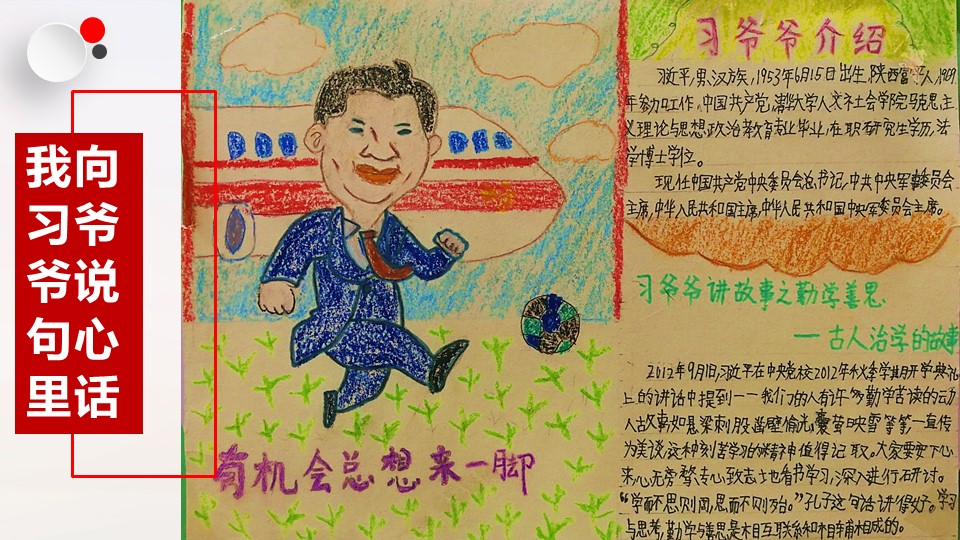 我向
习爷
爷说
句心
里话
有机会总想来一脚
习爷爷介绍
习近平,男,汉族,1953年6月15日出生,陕西富平人,1969
年参加工作,中国共产党,清华大学人文社会学院马克思主
义理论与思想政治教育专业毕业,在职研究生学历,法
学博士学位。
现任中国共产党中央委员会总书记,中共中央军事委员会
主席,中华人民共和国主席,中华人民共和国中央军委员会主席。
习爷爷讲故事之勤学善思
—古人治学的故事
2012年9月1日,习近平在中央党校2012年秋季学期开学典礼
上的讲话中提到——我们的人有许多勤学苦读的
人故事,如悬梁刺股、凿壁偷光、囊萤映雪等等,一直传
为美谈,这种刻苦学习的精神值得记取。大家要安下心
来,心无旁骛,专心致志士也看书学习,深入进行研讨。
“学而不思则罔,思而不则殆。”孔子这句话讲得好。学习
与思考,勤学与善思是相互联系和相辅相成的。